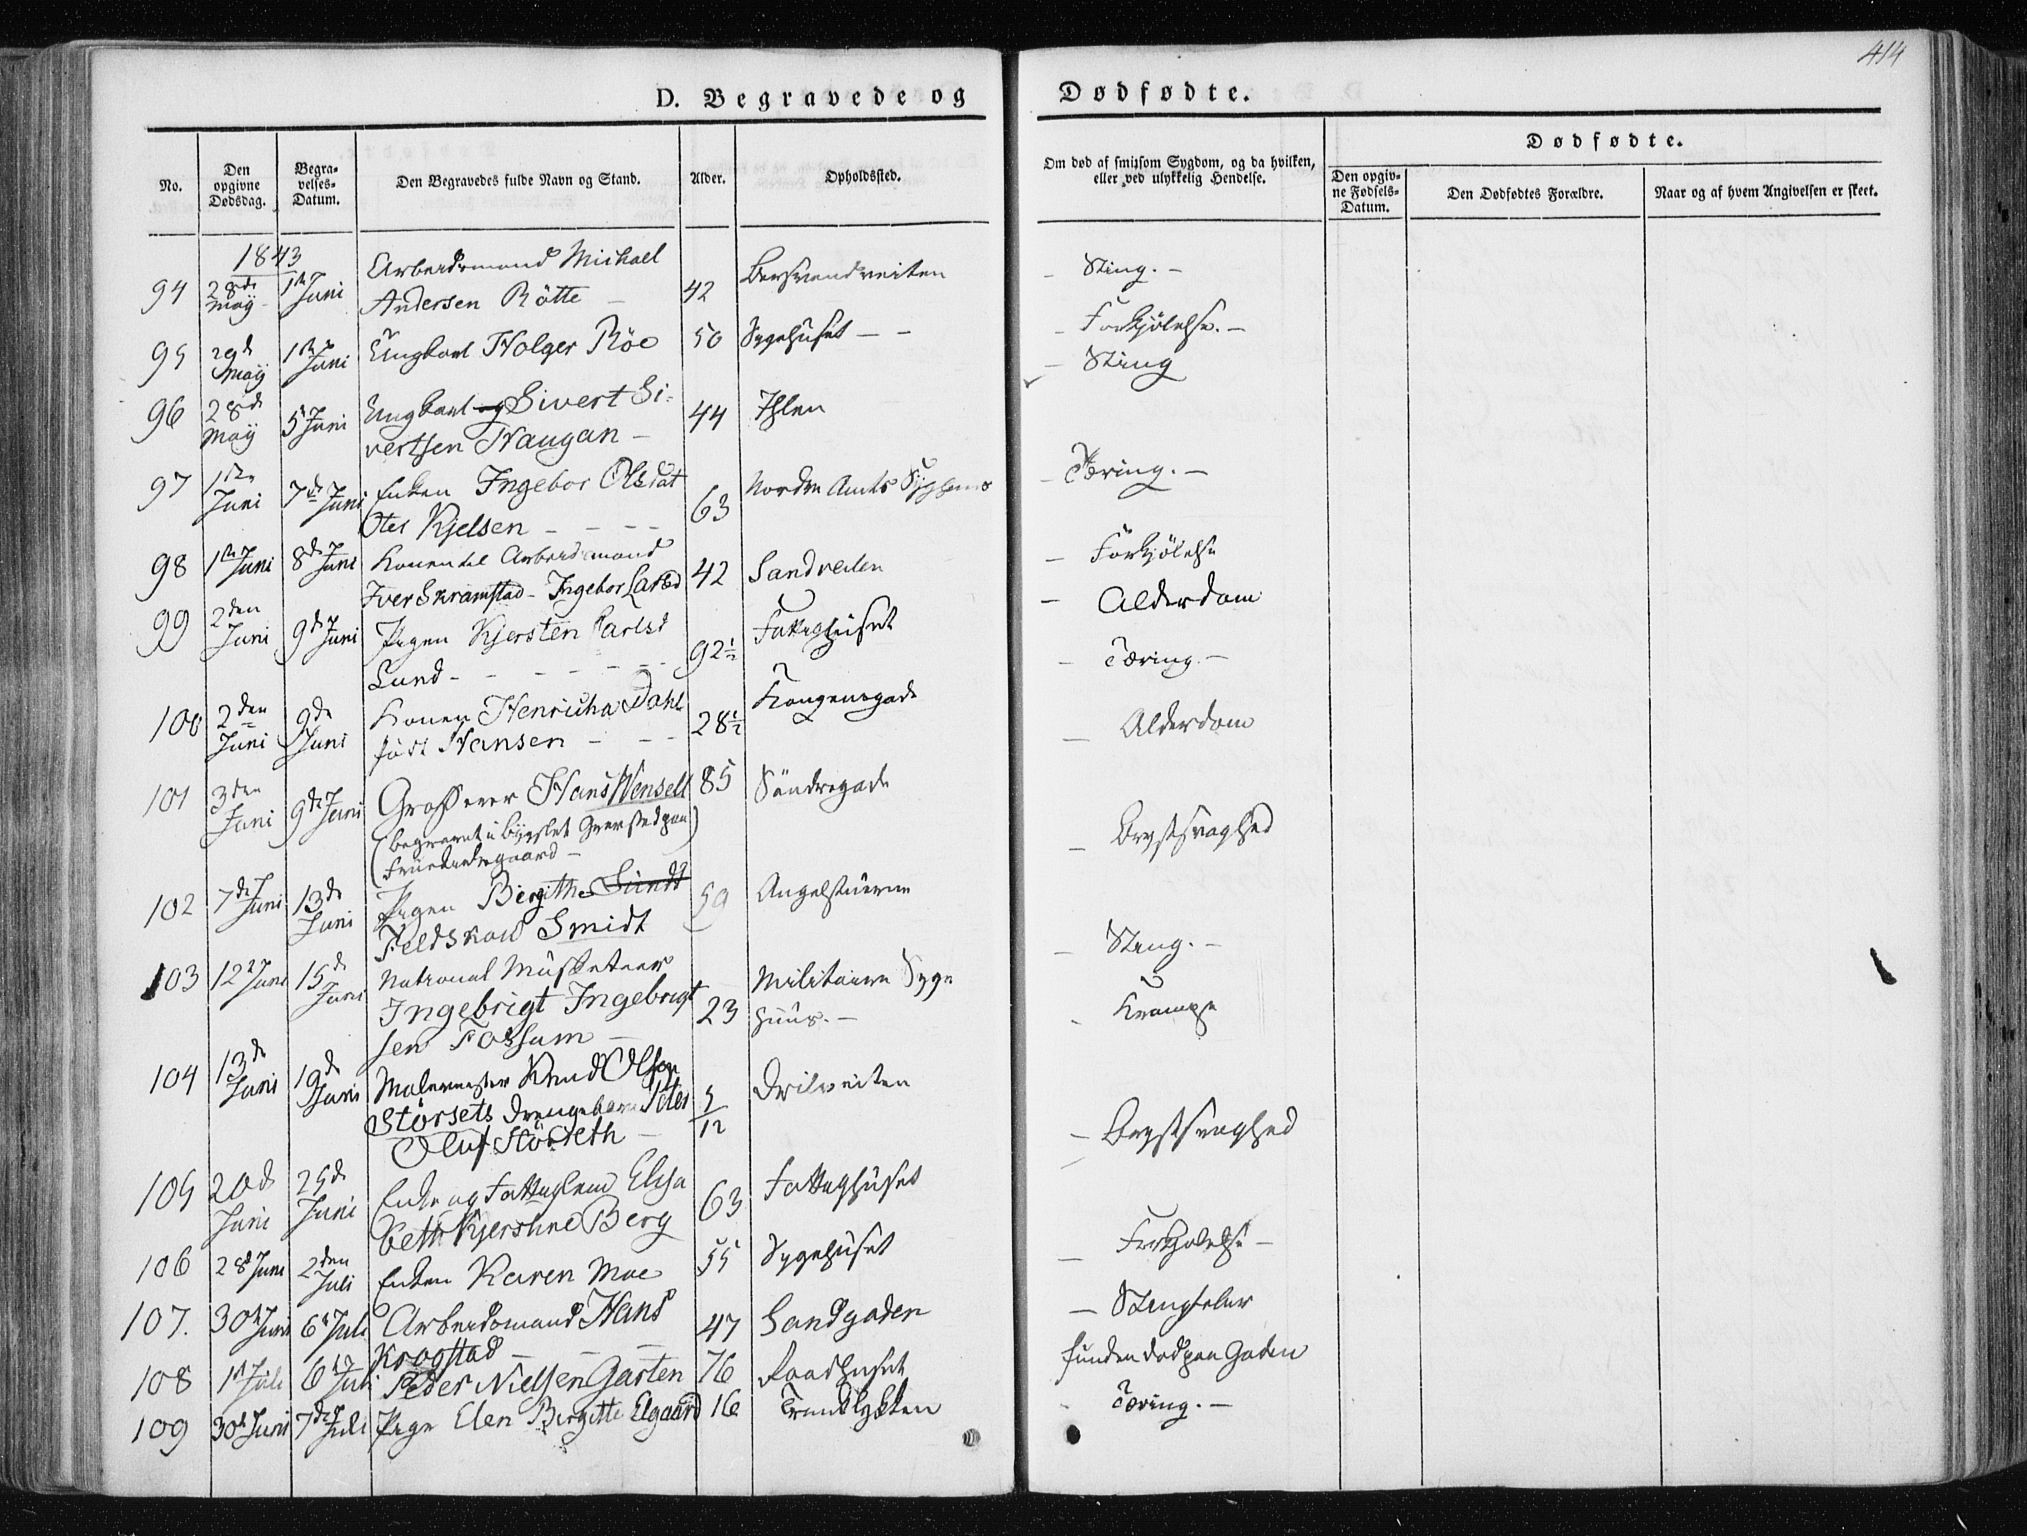 414
D. Begravede og Dødfødte.
No.
Den opgivne Dødsdag.
Begravelses-Datum.
Den Begravedes fulde Navn og Stand.
Alder.
Opholdssted.
Om død af smitsom Sygdom, og da hvilken, eller ved ulykkelig Hendelse.
Dødfødte.
Den opgivne Fødsels-Datum.
Den Dødfødtes Forældre.
Naar og af hvem Angivelsen er skeet.
1843
94 28de May 1ste Juni Arbeidsmand Michael
Andersen Rötte - 42 Bersvendveiten - Sting. -
95 29de May 1ste Juni Ungkarl Holger Röe 50 Sygehuset - - - Forkjölelse. -
96 28de May 5 Juni Ungkarl Sivert Si-
vertsen Haugan - 44 Ihlen - Sting
97 1ste Juni 7de Juni Enken Ingebor Olsdat
Otes Kjelsen - - - - 63 Nordre Amts Sygehuus - Tæring. -
98 1ste Juni 8de Juni Konen til Arbeidsmand
Iver Skramstad - Ingebor Larsd 42 Sandveiten - Forkjölelse
99 2den Juni 9de Juni Pigen Kjersten Larsd
Lund - - - - - 92 1/2 Fattighuset - Alderdom
100 2den Juni 9de Juni Konen Henricha Dahl
födt Hansen - - - 28 1/2 Kongensgade - Tæring -
101 3den Juni 9de Juni Grosserer Hans Wensell 85 Söndregade - Alderdom
(begravet i Gravsted paa
Fruekirkegaard -
102 7de Juni 13de Juni Pigen Birgithe Sundt
Feldskow Smidt 59 Angelltuerne - Brystsvaghed
103 12te Juni 15de Juni National Musketeer
Ingebrigt Ingebrigt
sen Fossum - 23 Militaire Syge
huus. - - Sting. -
104 13de Juni 19de Juni Malermester Knud Olsen
Störsets Drengebarn Peter
Oluf Störseth - 5/12 Örilveiten - Krampe
105 20de Juni 25de Juni Enke og Fattiglem Elisa
beth Kjerstine Berg 63 Fattighuset - Brystsvaghed
106 28de Juni 2den Juli Enken Karen Moe 55 Sygehuset - Forkjölelse -
107. 30te Juni 6te Juli Arbeidsmand Hans
Krogstad - - - 47 Sandgaden - Stingfeber
108 1ste Juli 6te Juli Peder Nielsen Garsten 76 Raadhuset funden död paa Gaden
109 30te Juni 7de Juli Pige Elen Birgitte Elgaard 16 - Tæring. -